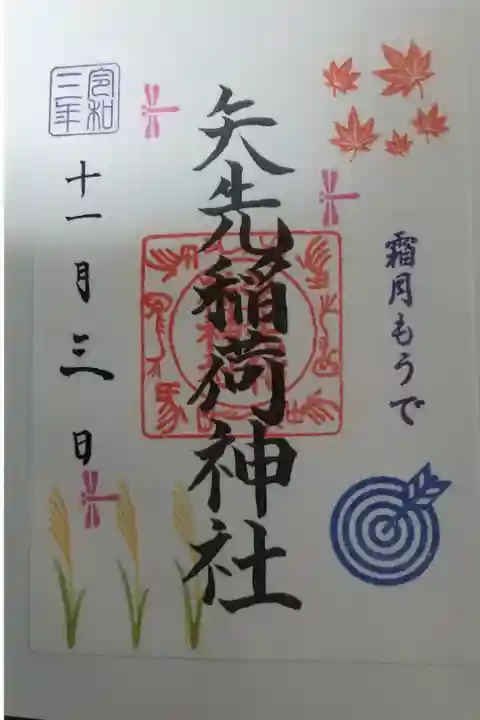 霜月もうで
矢先稲荷神社
令和二年
十一月三日